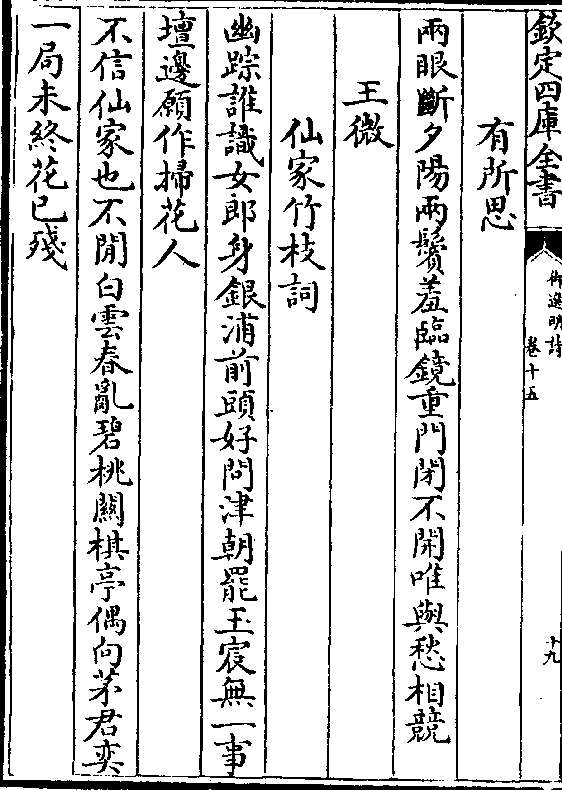 欽定四庫全書
御選明詩
卷十五
十九
有所思
兩眼斷夕陽兩鬢羞臨鏡重門閉不開唯與愁相競
王微
仙家竹枝詞
幽踪誰識女郎身銀浦前頭好問津朝罷玉宸無一事
壇邊願作掃花人
不信仙家也不閒白雲春亂碧桃關棋亭偶向茅君奕
一局未終花已殘